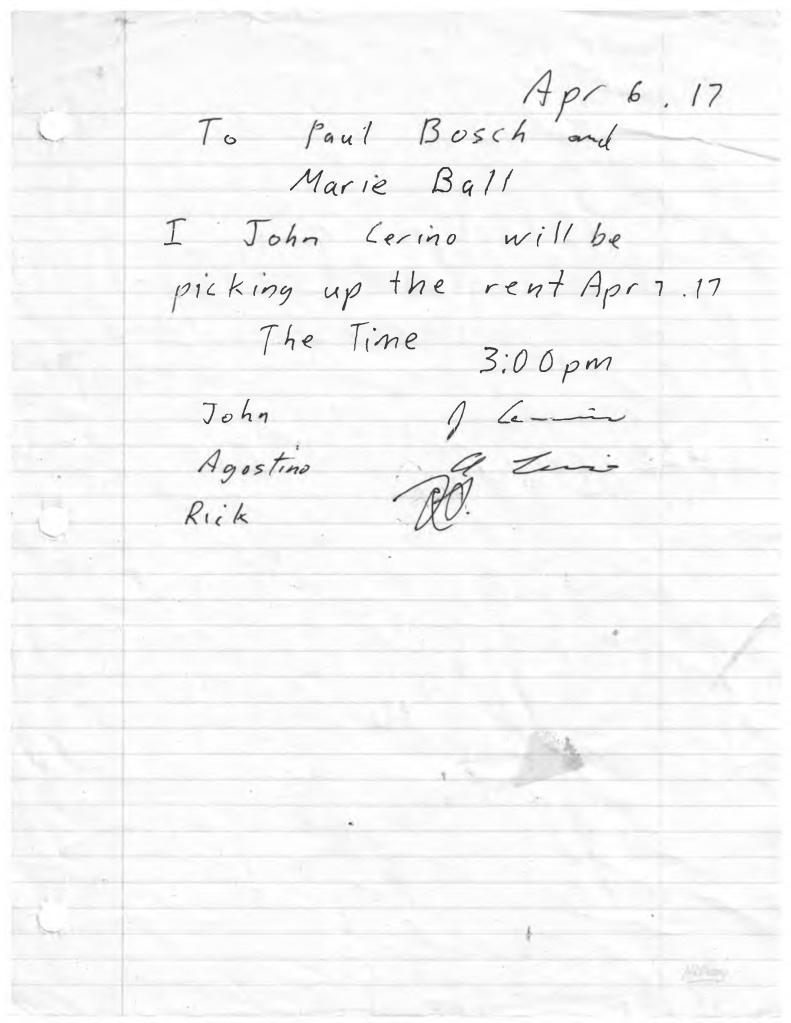 Apr 6.17
To Paul Bosch and
Marie Ball
I John Cerino will be
picking up the rent Apr 7.17
The Time
3:00pm
John J Cerino
Agostino
Rick